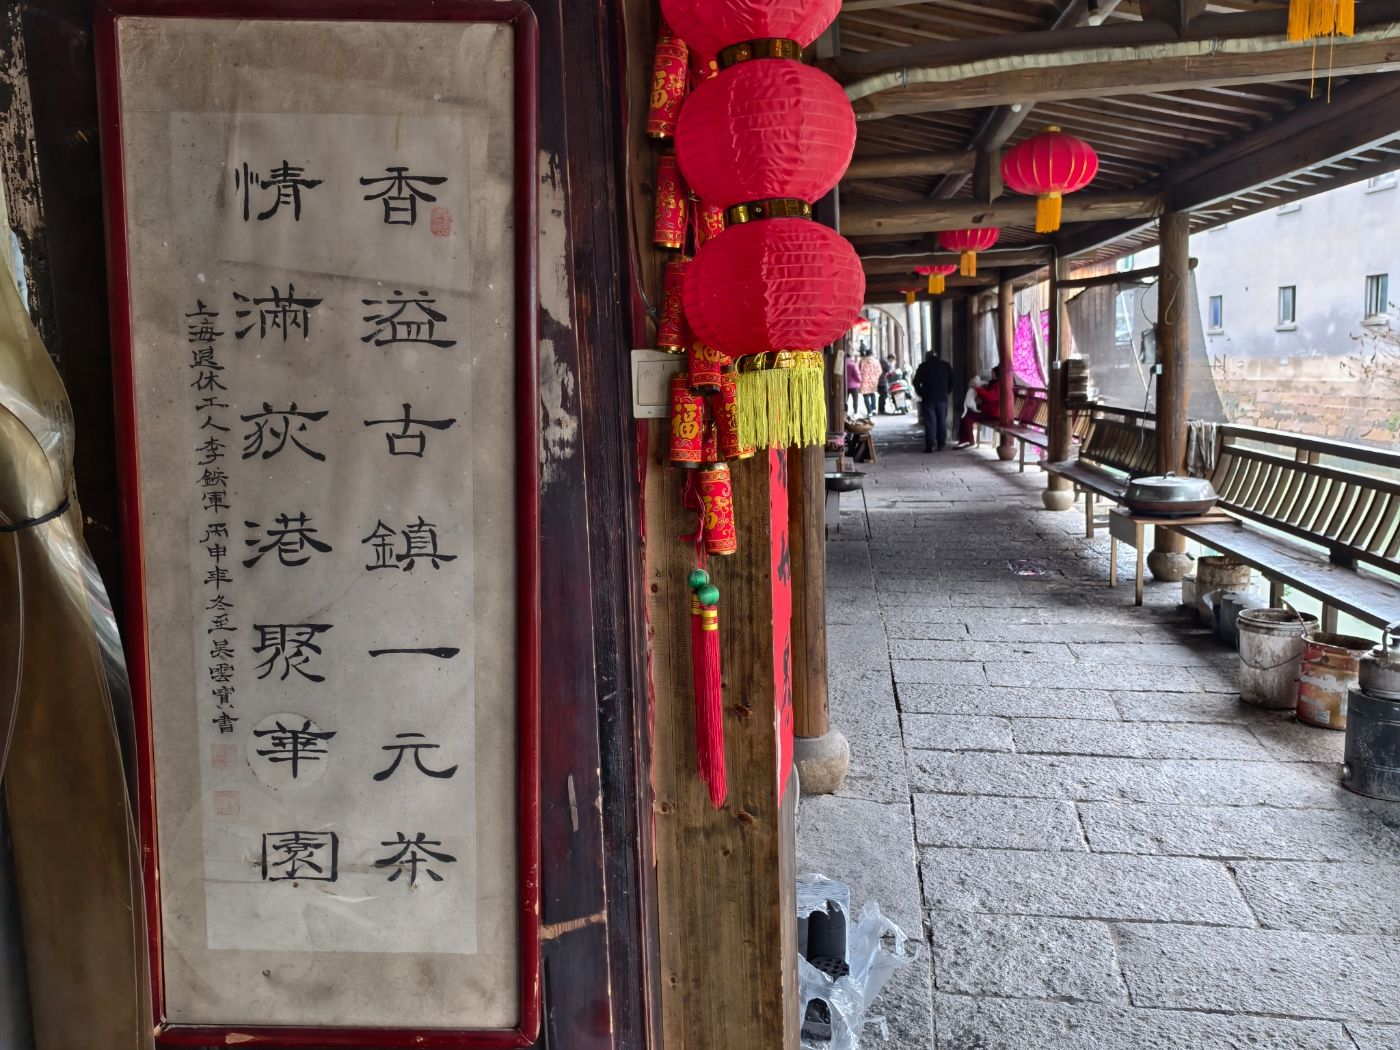 香溢古鎮一元茶
情滿荻港聚華園
上海退休工人李鉄軍丙申年冬至吴雲寶書
福
福
福
福